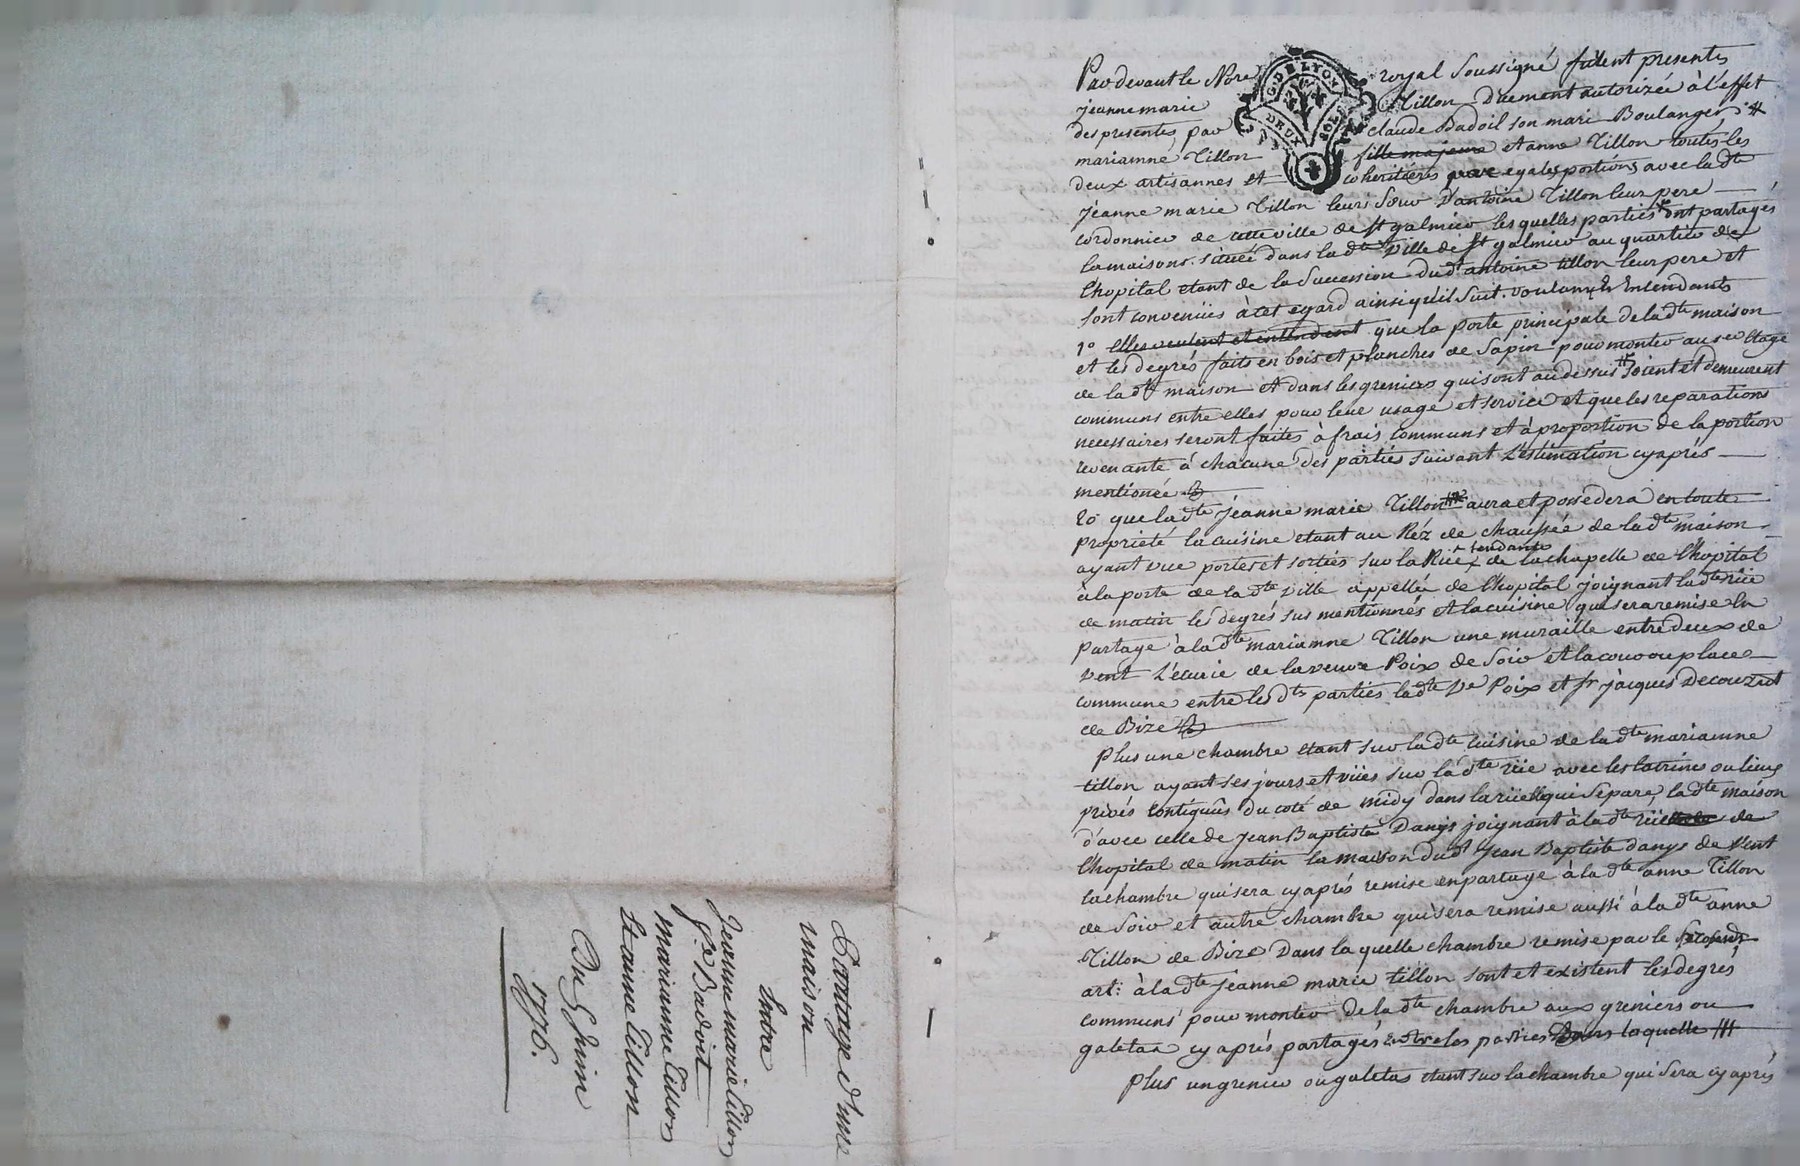 Partage d'une
maison
Entre
Jeanne marie Tillon
fe Badoit
marianne Tillon
Et anne Tillon
Du 5 juin
1776.
G. DE LYON
DEUX SOLS
Par devant le Nore royal Soussigné furent presentes
jeanne marie Tillon Duement autorizée à l'effet
des presentes par claude Badoil son mari Boulanger
marianne Tillon fille majeure et anne Tillon toutes les
deux artisannes et coheritières egales portions avec la dte
jeanne marie Tillon leur Sœur D'antoine Tillon leur pere
cordonnier de cette ville de St galmier lesquelles parties ont partagés
la maison située dans la dte ville de St galmier au quartier de
l'hopital etant de la Succession du dt antoine tillon leur pere et
sont convenües à cet egard ainsi qu'il suit. voulants Entendants
1o Elles veulent et entendent que la porte principale de la dte maison
et les degrés faits en bois et planches de Sapin pour monter au 1er Etage
de la dte maison et dans les greniers qui sont au dessus soient et demeurent
communs entre elles pour leur usage et service et que les reparations
necessaires seront faites à frais communs et à proportion de la portion
revenante à chacune des parties suivant L'estimation cy après
mentionée
2o que la dte jéanne marie Tillon aura et possedera en toute
proprieté la cuisine etant au Réz de chaussée de la dte maison
ayant vüe portes et sorties sur la Rüe tendante de la chapelle de l'hopital
à la porte de la dte ville appellée de l'hopital joignant la dte rüe
de matin les degrés sus mentionnés et la cuisine qui sera remise En
partage à la dte marianne Tillon une muraille entre deux de
vent L'écurie de la veuve Poix de Soir et la cour ou place
commune entre les dts parties la dte Ve Poix et sr jacques Decouzrat
de Bize
Plus une chambre etant sur la dte cuisine de la dte marianne
tillon ayant ses jours et vües sur la dte rüe avec les latrines ou lieux
privés contigues du coté de midy dans la rüelle qui separe la dte maison
d'avec celle de jean Baptiste Danys joignant à la dte rüe de
l'hopital de matin la maison du dt jean Baptiste danys de Vent
la chambre qui sera cy après remise en partage à la dte anne Tillon
de Soir et autre chambre qui sera remise aussi à la dte anne
Tillon de Bize Dans la quelle chambre remise par le second
art: à la dte jeanne marie tillon sont et existent les degres
communs pour monter de la dte chambre aux greniers ou
galetas cy après partagés entre les parties Dans laquelle
Plus un grenier ou galetas etant sur la chambre qui sera cy après